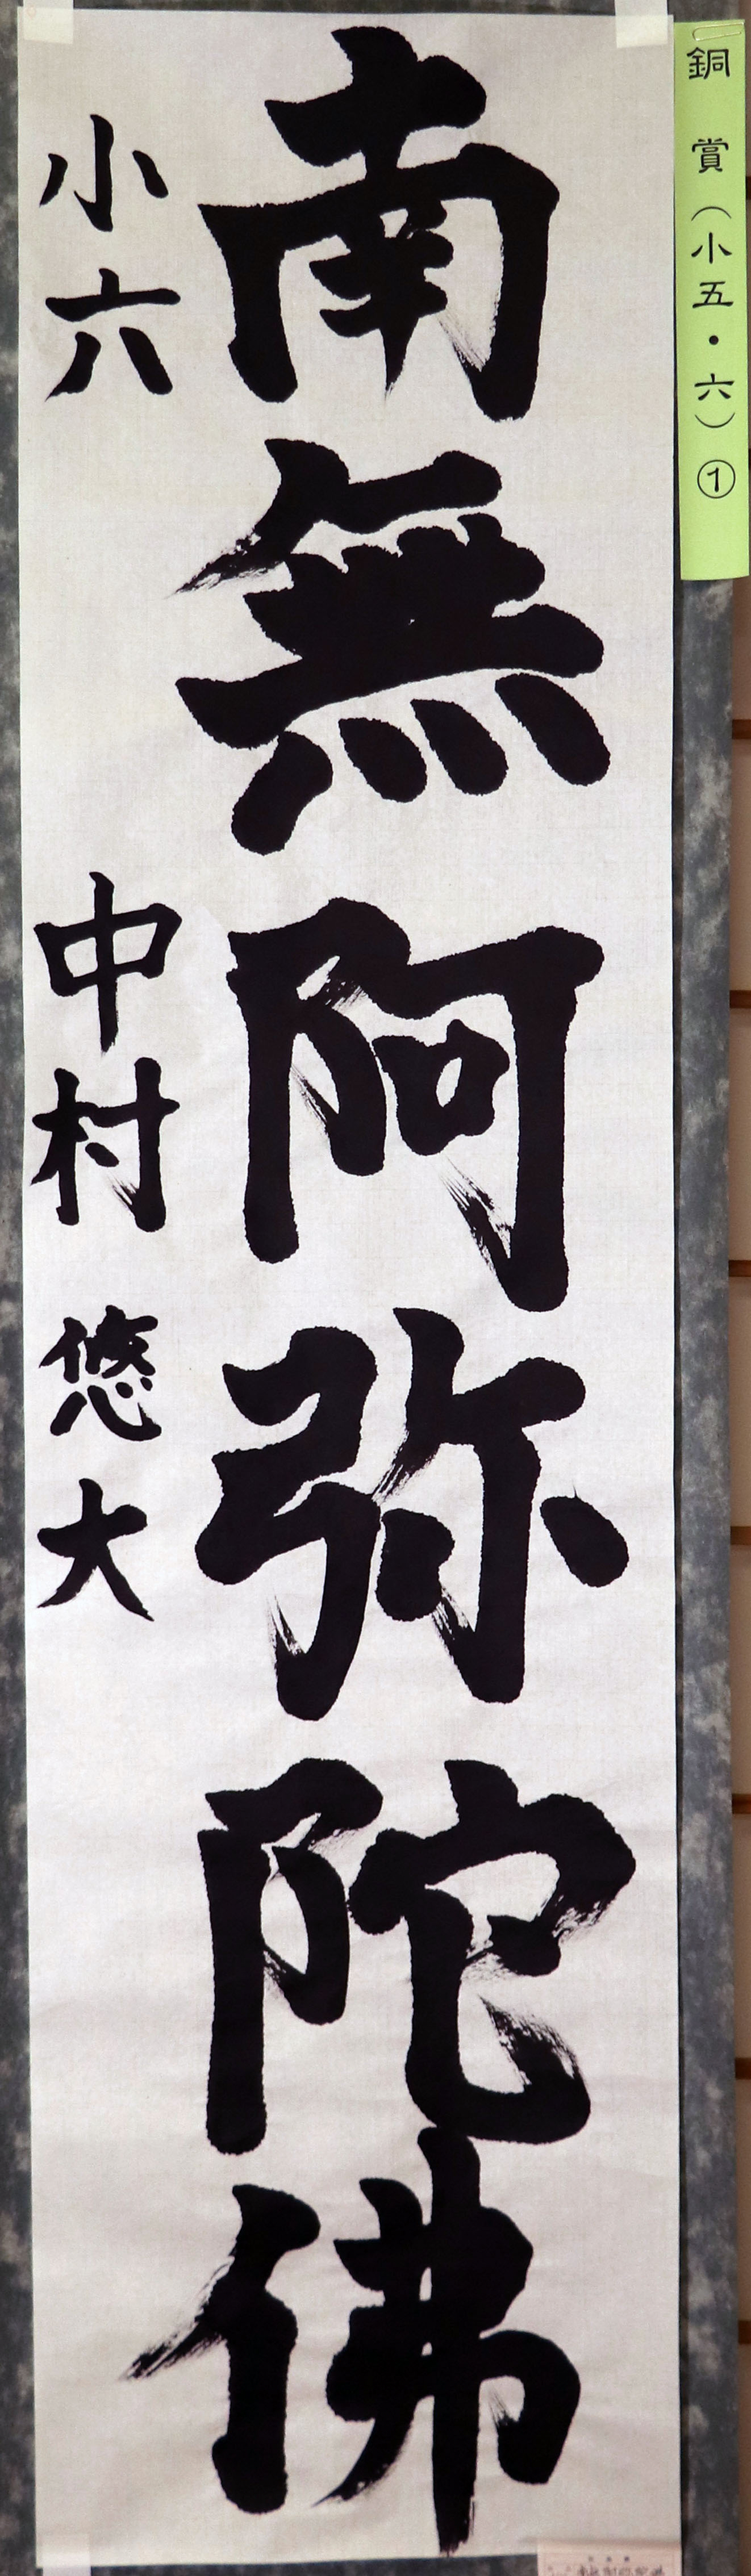 銅賞（小五・六）①
南無阿弥陀佛
小六 中村悠大